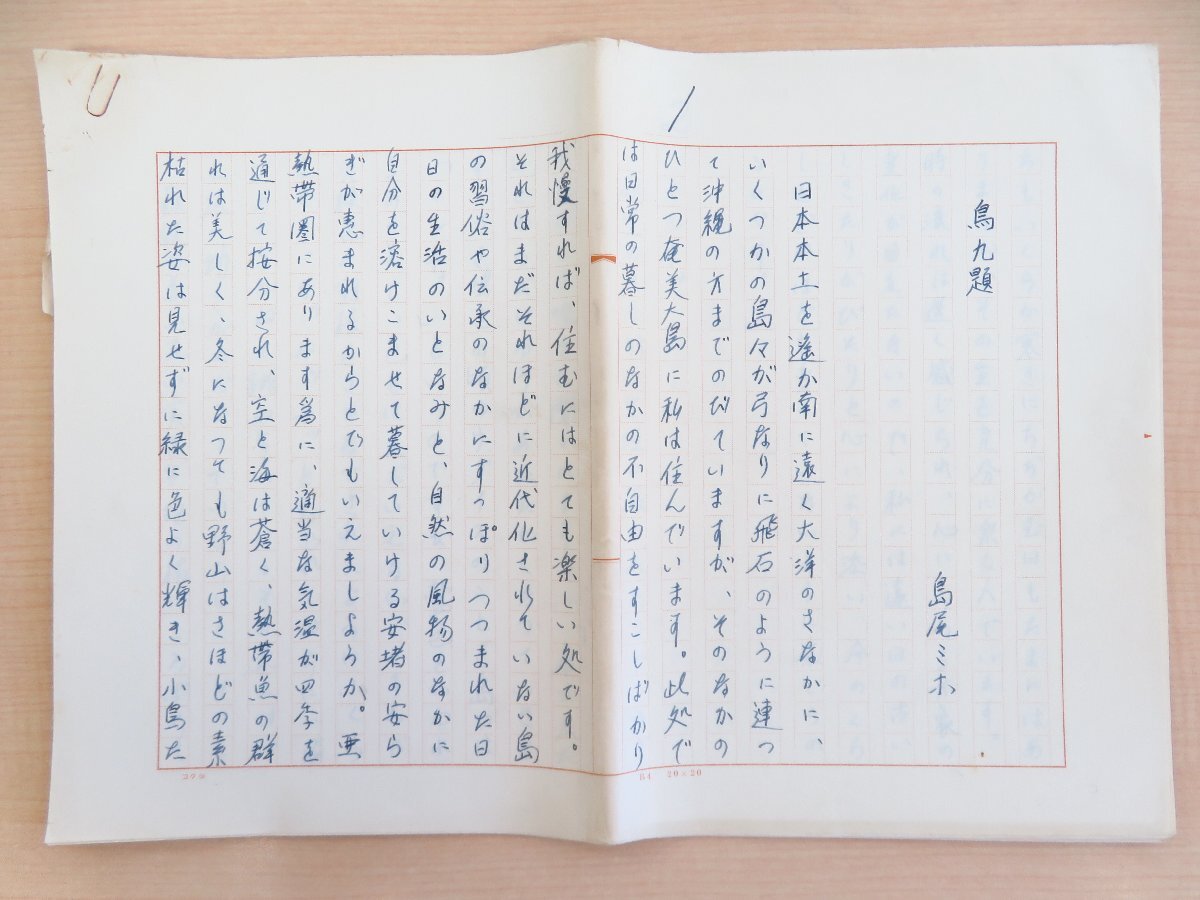 1
鳥九題
島尾ミホ
日本本土を遙か南に遠く大洋のさなかに、
いくつかの島々が弓なりに飛石のように連っ
て沖縄の方までのびていますが、そのなかの
ひとつ奄美大島に私は住んでいます。此処で
は日常の暮しのなかの不自由をすこしばかり
我慢すれば、住むにはとても楽しい処です。
それはまだそれほどに近代化されていない島
の習俗や伝承のなかにすっぽりつつまれた日
日の生活のいとなみと、自然の風物のなかに
自分を溶けこませて暮していける安堵の安ら
ぎが恵まれるからとでもいえましょうか。亜
熱帯圏にあります為に、適当な気温が四季を
通じて按分され、空と海は蒼く、熱帯魚の群
れは美しく、冬になっても野山はさほどの素
枯れた姿は見せずに緑に色よく輝き、小鳥た
コクヨ
B4 20×20